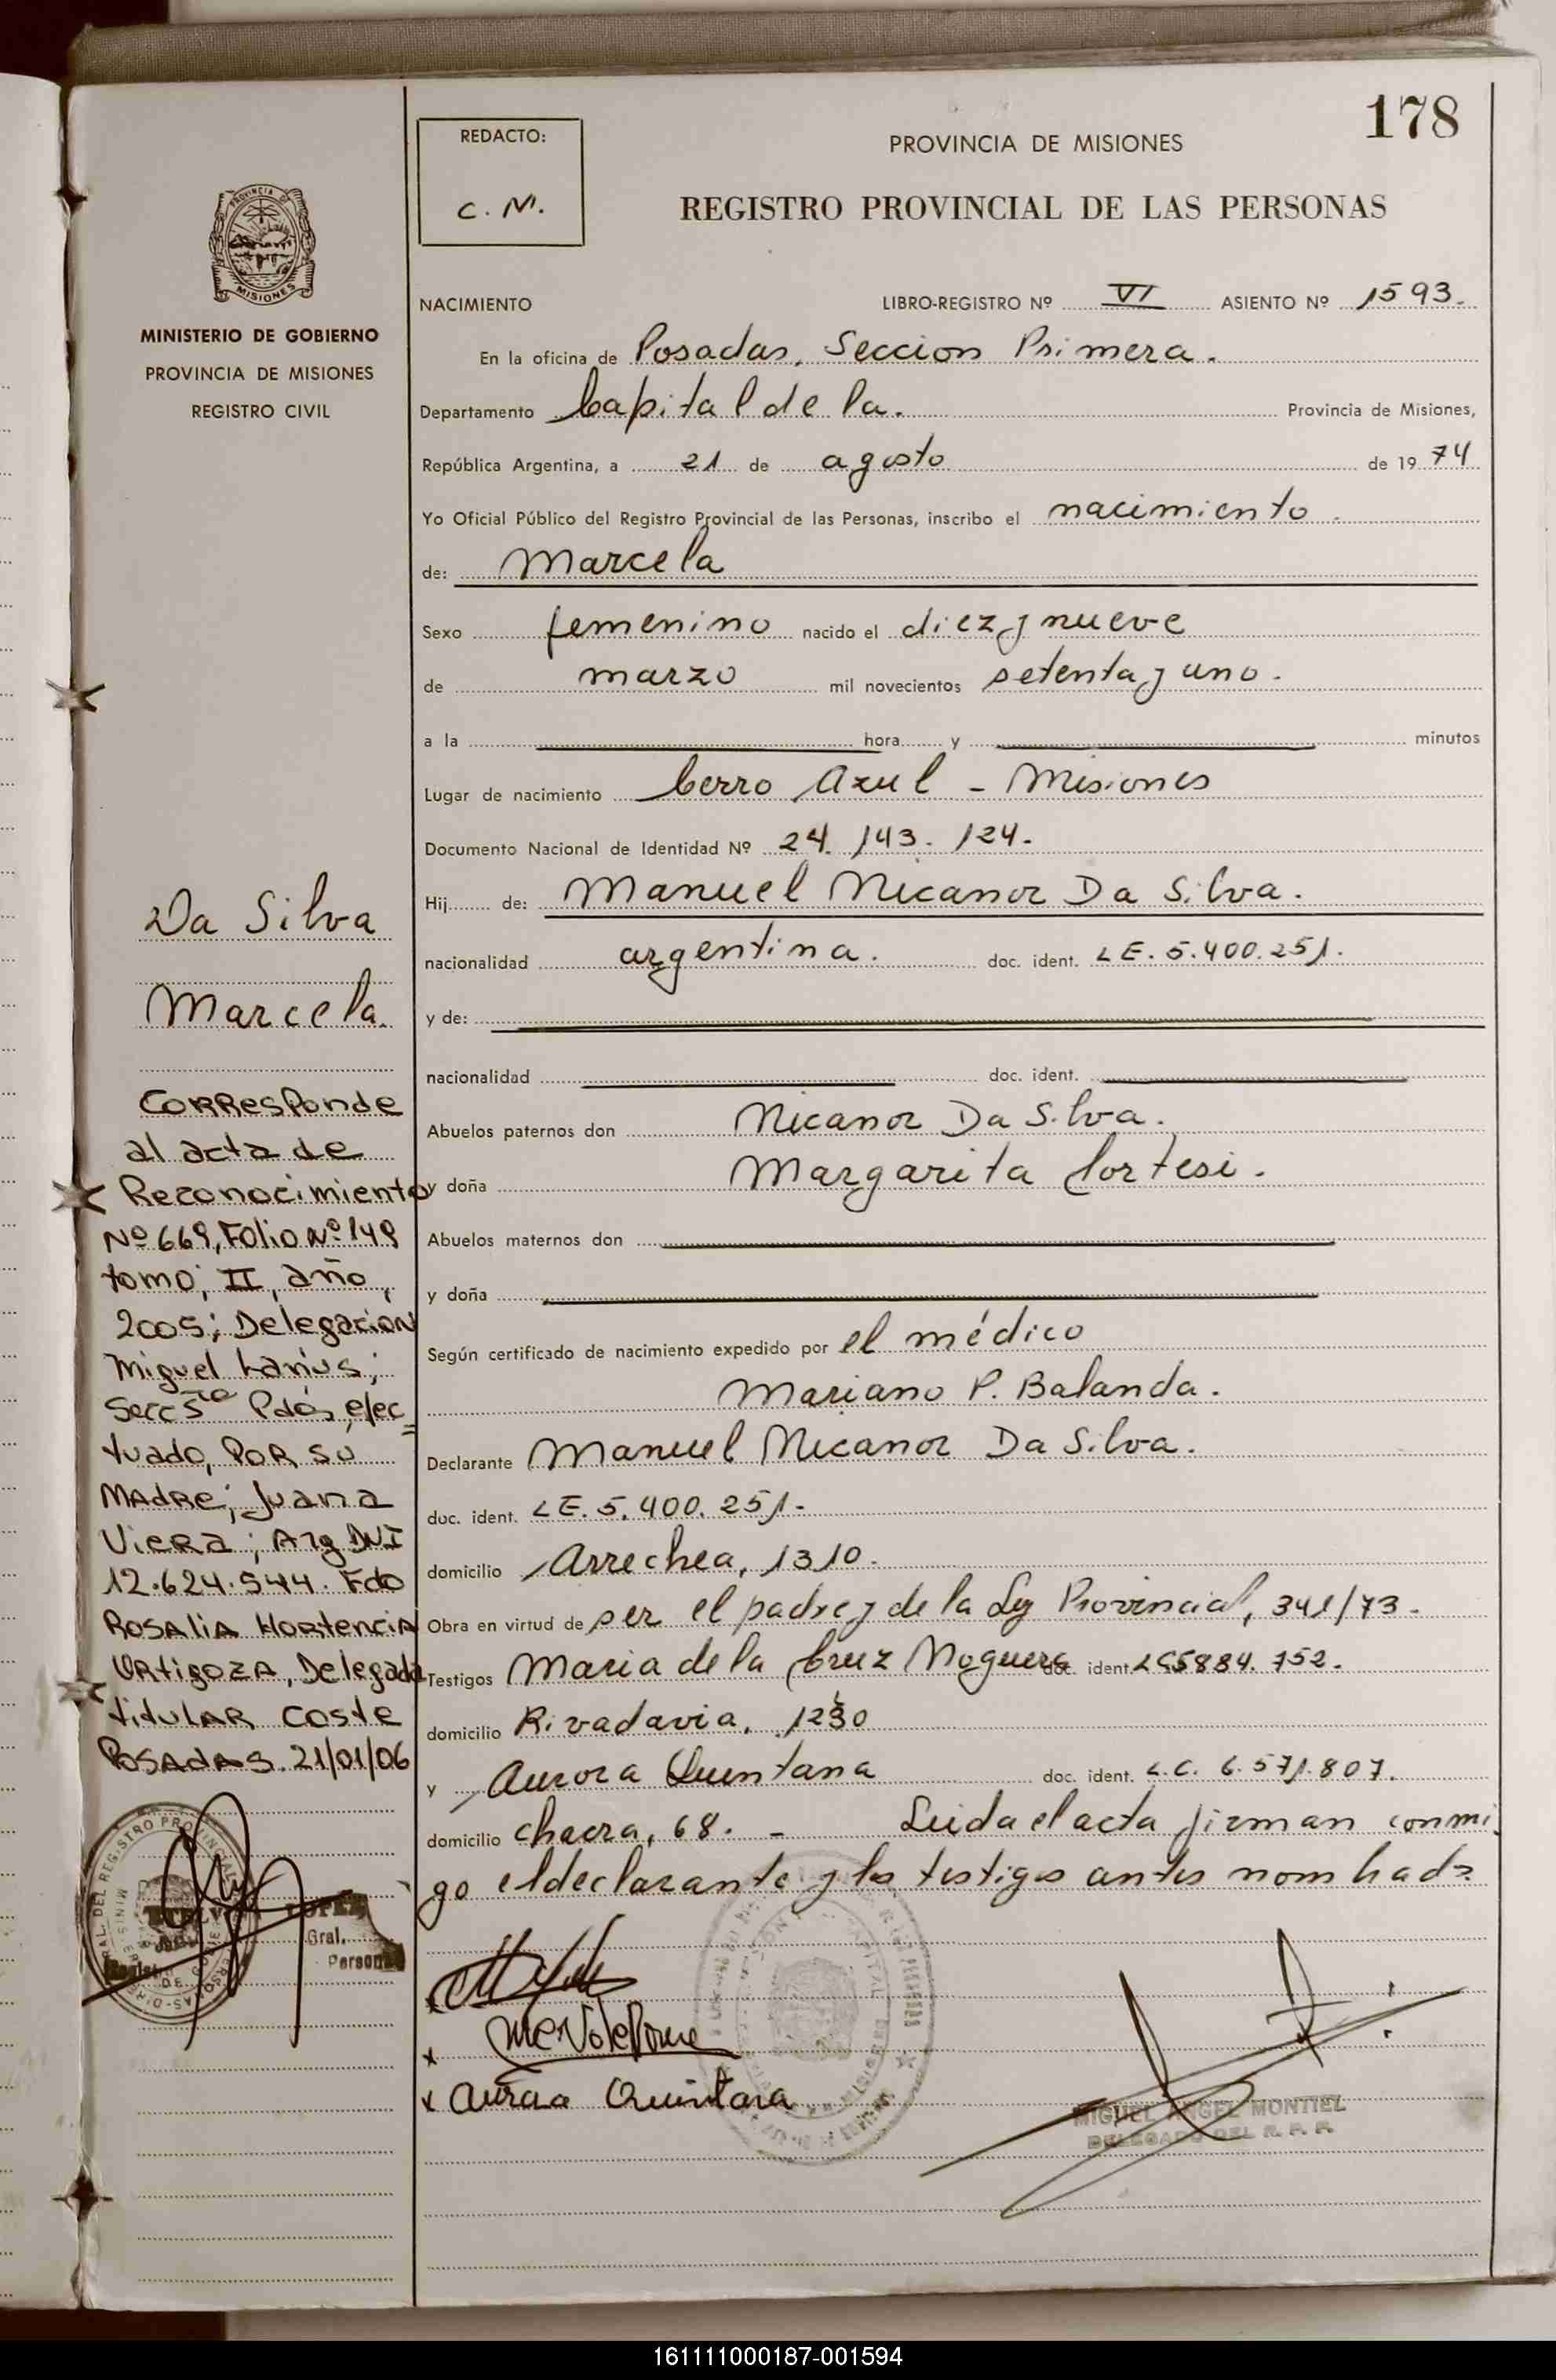 178
REDACTO:
C. M.
PROVINCIA DE MISIONES
REGISTRO PROVINCIAL DE LAS PERSONAS
PROVINCIA DE
MISIONES
MINISTERIO DE GOBIERNO
PROVINCIA DE MISIONES
REGISTRO CIVIL
NACIMIENTO LIBRO-REGISTRO Nº VI ASIENTO Nº 1593.
En la oficina de Posadas, Seccion Primera.
Departamento Capital de la. Provincia de Misiones,
República Argentina, a 21 de agosto de 1974
Yo Oficial Público del Registro Provincial de las Personas, inscribo el nacimiento.
de: Marcela
Sexo femenino nacido el diez y nueve
de marzo mil novecientos setenta y uno.
a la hora y minutos
Lugar de nacimiento Cerro Azul - Misiones
Documento Nacional de Identidad Nº 24.143.124.
Hij de: Manuel Nicanor Da Silva.
nacionalidad argentina. doc. ident. L E. 5.400.251.
y de:
nacionalidad doc. ident.
Abuelos paternos don Nicanor Da Silva.
y doña Margarita Cortesi.
Abuelos maternos don
y doña
Según certificado de nacimiento expedido por el médico
Mariano P. Balanda.
Declarante Manuel Nicanor Da Silva.
doc. ident. LE. 5.400.251.-
domicilio Arrechea, 1310.
Obra en virtud de ser el padre y de la Ley Provincial, 341/73.
Testigos Maria de la Cruz Noguera doc. ident. LC5884.752.
domicilio Rivadavia, 1230
y Aurora Quintana doc. ident. L.C. 6.571.807.
domicilio chacra, 68. - Leida el acta firman conmi
go el declarante y los testigos antes nombrados
Aurora Quintana
MIGUEL ANGEL MONTIEL
DELEGADO DEL R. P. P.
Da Silva
Marcela.
Corresponde
al acta de
Reconocimiento
Nº 669, Folio Nº 149
tomo; II, año,
2005; Delegacion
Miguel Lanús;
Secc 5ta Pdas, efec=
tuado, por su
Madre; Juana
Viera; Arg DNI
12.624.544. Fdo
Rosalia Hortencia
Urtigoza, Delegada
titular Coste
Posadas. 21/01/06
Gral.
161111000187-001594